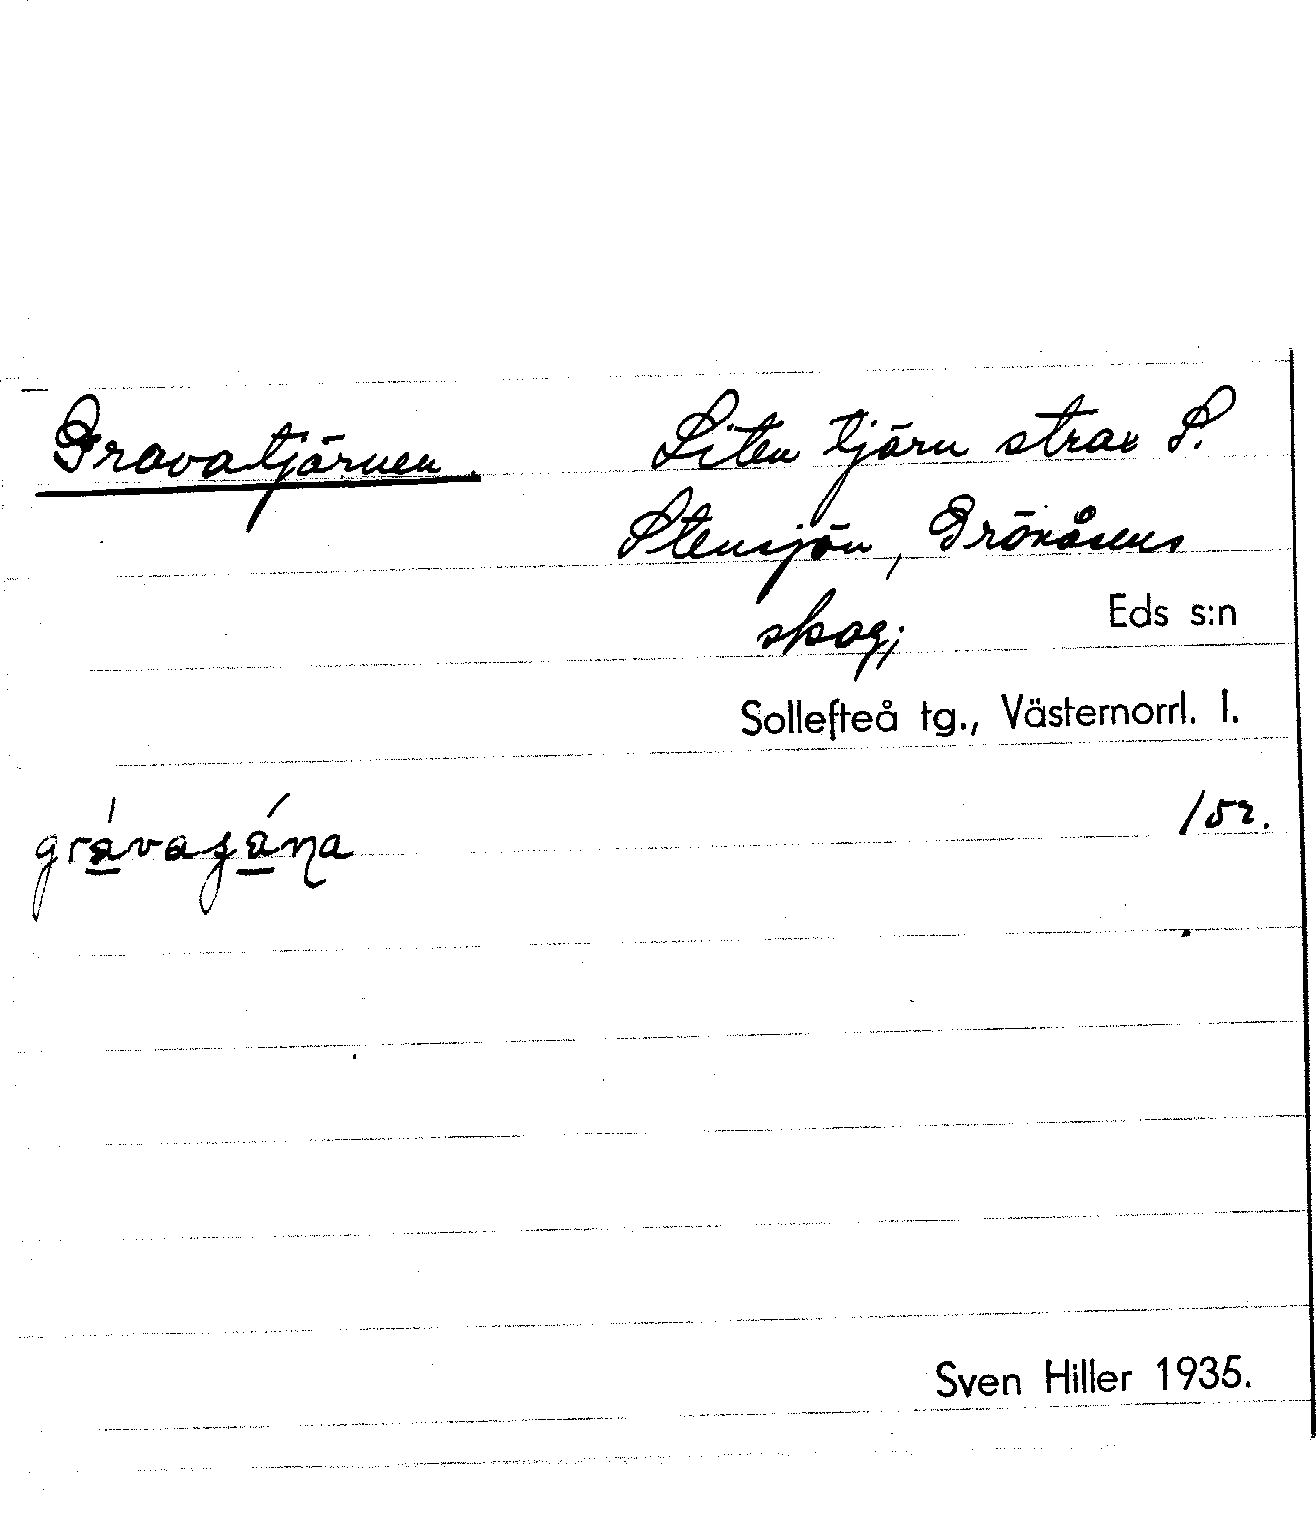 Gravatjärnen. Liten tjärn strax S.
Stensjön, Grökåsens
skog; Eds s:n
Sollefteå tg., Västernorrl. l.
Sven Hiller 1935.